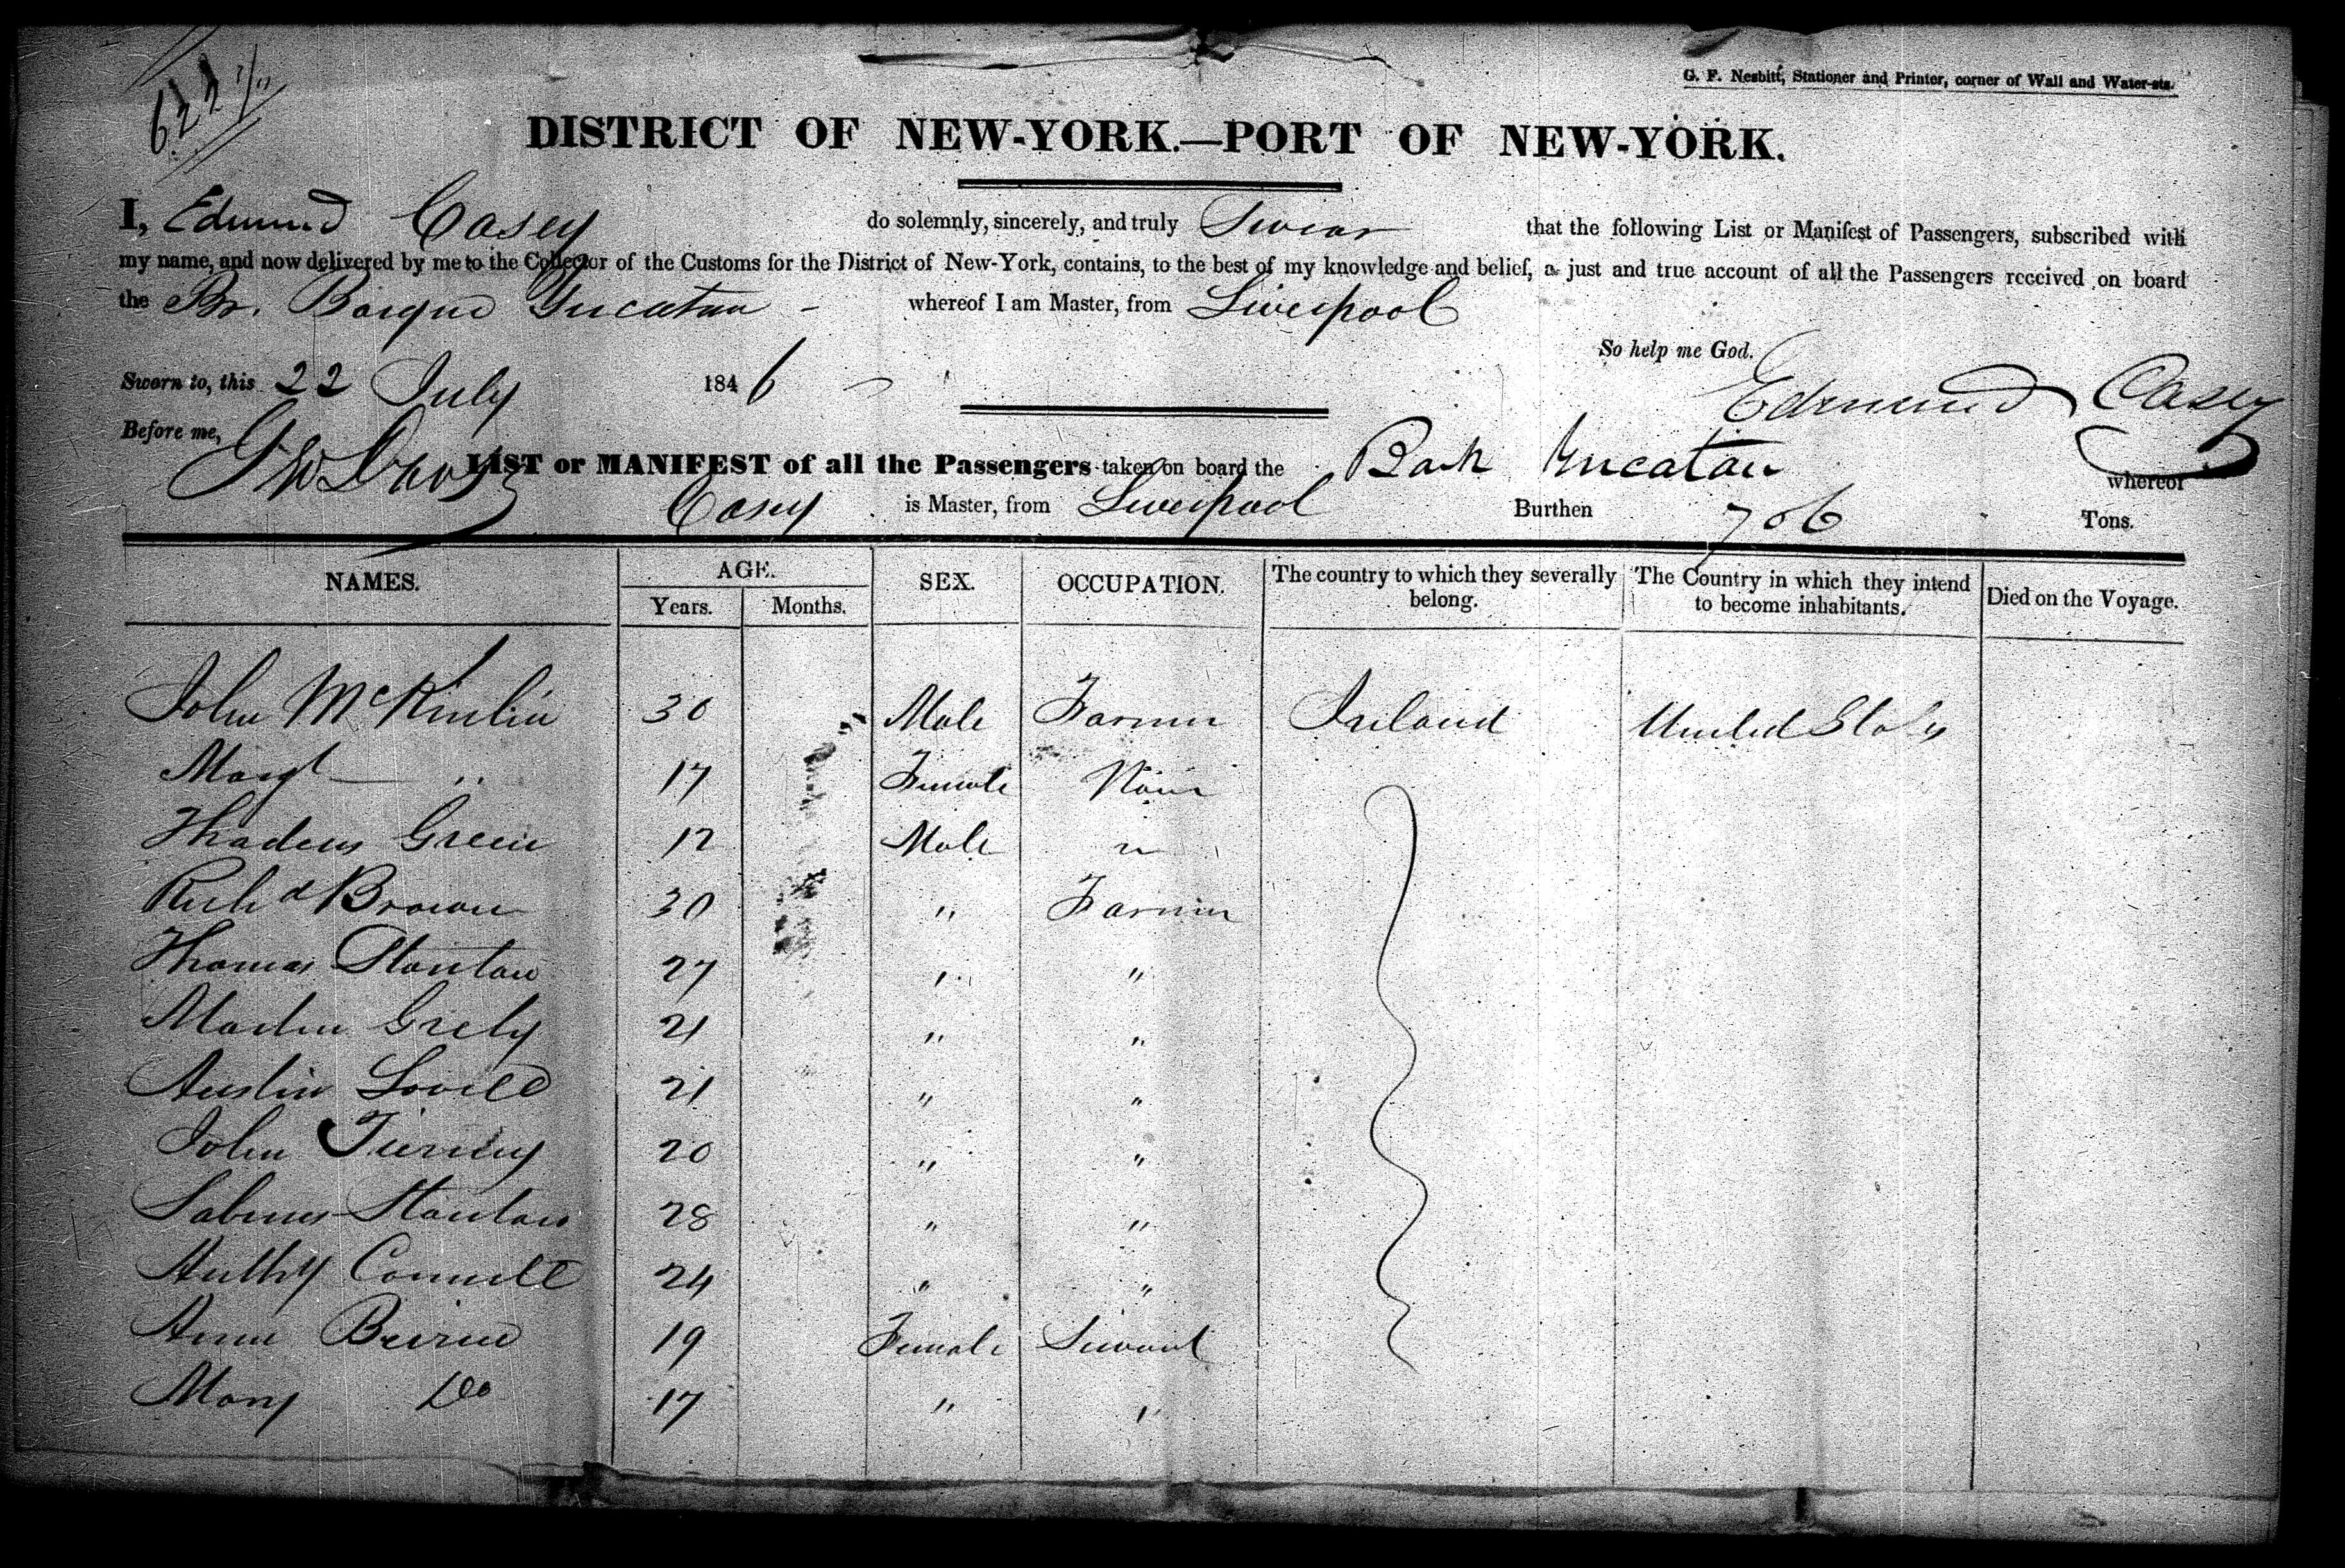 622
G. F. Nesbitt, Stationer and Printer, corner of Wall and Water-sts.
DISTRICT OF NEW-YORK.—PORT OF NEW-YORK.
I, Edmund Casey do solemnly, sincerely, and truly Swear that the following List or Manifest of Passengers, subscribed with
my name, and now delivered by me to the Collector of the Customs for the District of New-York, contains, to the best of my knowledge and belief, a just and true account of all the Passengers received on board
the Br. Barque Yucatan - whereof I am Master, from Liverpool
So help me God.
Sworn to, this 22 July 1846 Edmund Casey
Before me, G W Davis
LIST or MANIFEST of all the Passengers taken on board the Bark Yucatan whereof
Casey is Master, from Liverpool Burthen 706 Tons.
NAMES. AGE. Years. Months. SEX. OCCUPATION. The country to which they severally belong. The Country in which they intend to become inhabitants. Died on the Voyage.
John McKinlin 30 Male Farmer Ireland United States
Margt " 17 Female None
Thadeus Green 12 Male "
Richd Brown 30 " Farmer
Thomas Stanton 27 " "
Martin Grely 21 " "
Austin Lovell 21 " "
John Tierney 20 " "
Stanton 28 " "
Anthy Connell 24 " "
Anne Beirne 19 Female Servant
Mary Do 17 " "